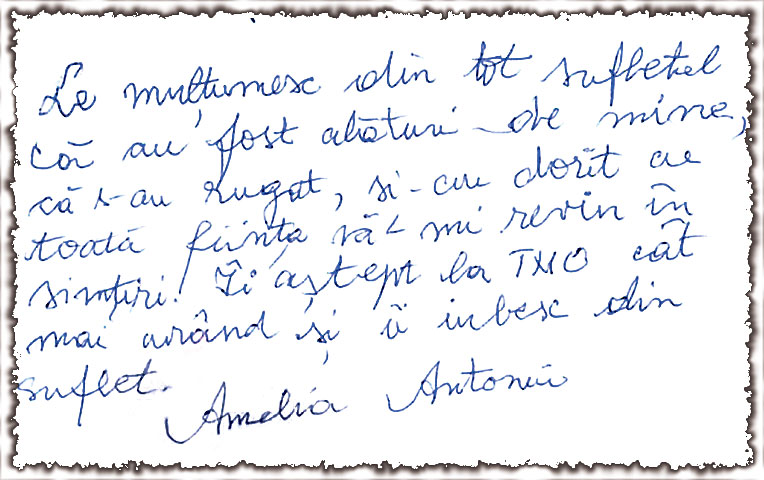 Le mulțumesc din tot sufletul
că au fost alături de mine,
că s-au rugat, și-au dorit cu
toată ființa să-mi revin în
simțiri. Îi aștept la TMO cât
mai curând și îi iubesc din
suflet.
Amelia Antoniu